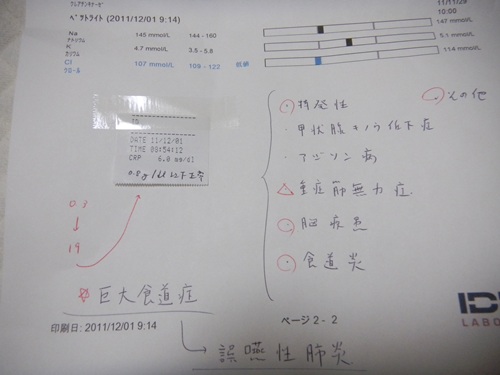 ベクトライト (2011/12/01 9:14)
11/11/29
10:00
Na 145 mmol/L 144 - 160 147 mmol/L
ナトリウム
K 4.7 mmol/L 3.5 - 5.8 5.1 mmol/L
カリウム
Cl 107 mmol/L 109 - 122 低値 114 mmol/L
クロール
DATE 11/12/01
TIME 08:54:12
CRP 6.0 mg/dl
以下正常
03
↓
19
・特発性
その他
・甲状腺キノウ低下症
・アジソン病
△重症筋無力症
・脳疾患
・食道炎
巨大食道症
印刷日: 2011/12/01 9:14
ページ 2 - 2
→ 誤嚥性肺炎
LABO